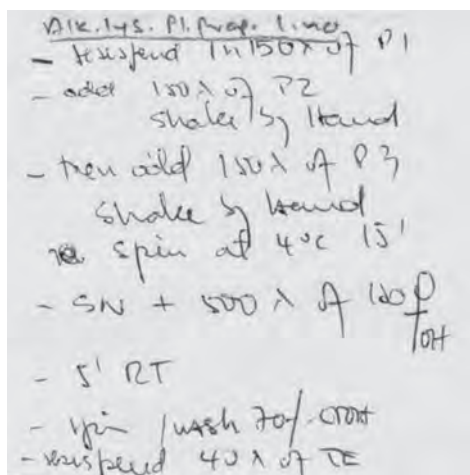 Alk. lys. Pl. Prep. Lino
- resuspend in 150 λ of P1
- add 150 λ of P2
shake by Hand
- then add 150 λ of P3
shake by Hand
spin at 4°C 15'
- SN + 500 λ of isop
OH
- 5' RT
- spin / wash 70% ETOH
- resuspend 40 λ of TE